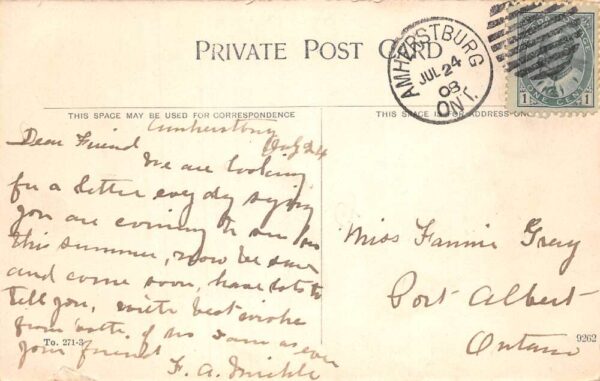 PRIVATE POST CARD
AMHERSTBURG
JUL 24
08
ONT.
CANADA POSTAGE
1 ONE CENT 1
THIS SPACE MAY BE USED FOR CORRESPONDENCE
THIS SPACE IS FOR ADDRESS ON
Amherstburg
July 24
Dear Friend
We are looking
for a letter every day saying
you are coming to see us
this summer, now be sure
and come soon, have lots to
tell you, with best wishes
from both of us I am as ever
your friend
F. A.
Miss Fannie Gray
Port Albert
Ontario
To. 271-3
9262